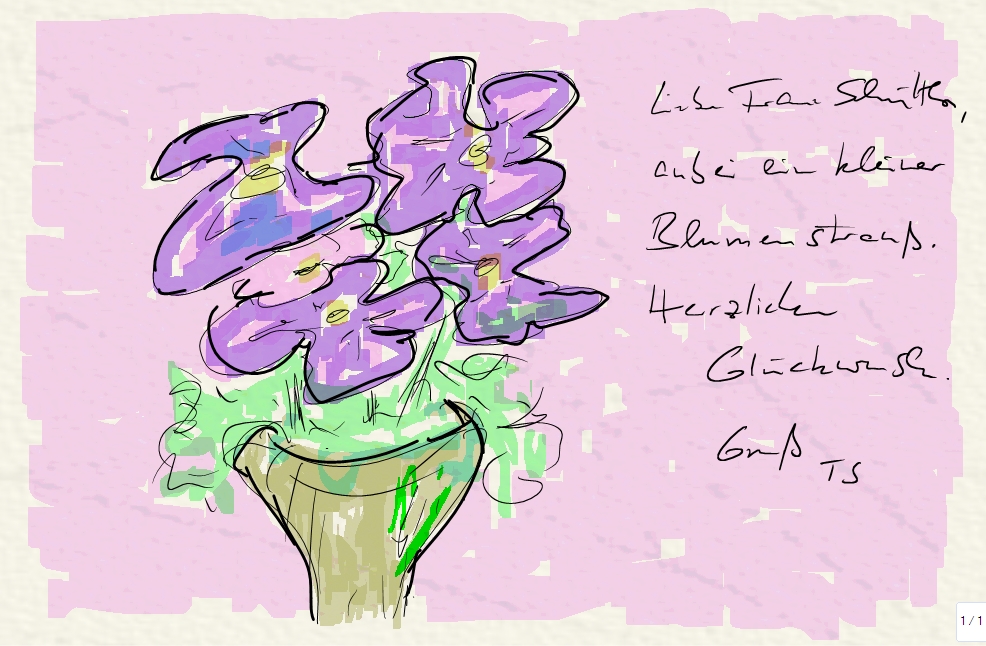 Liebe Frau
anbei ein kleiner
Blumenstrauß.
Herzlichen
Glückwunsch.
Gruß
TS
1/1